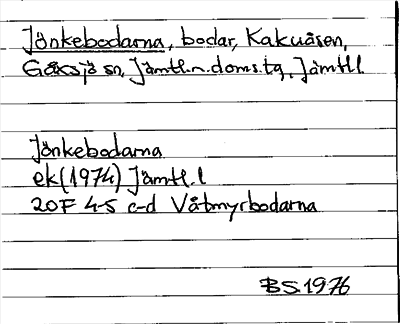 Jönkebodarna, bodar, Kakuåsen,
Gåxsjö sn, Jämtl. n. doms.tg, Jämtl l.
Jönkebodarna
ek (1974) Jämtl. l
20F 4-5 c-d Våtmyrbodarna
BS 1976